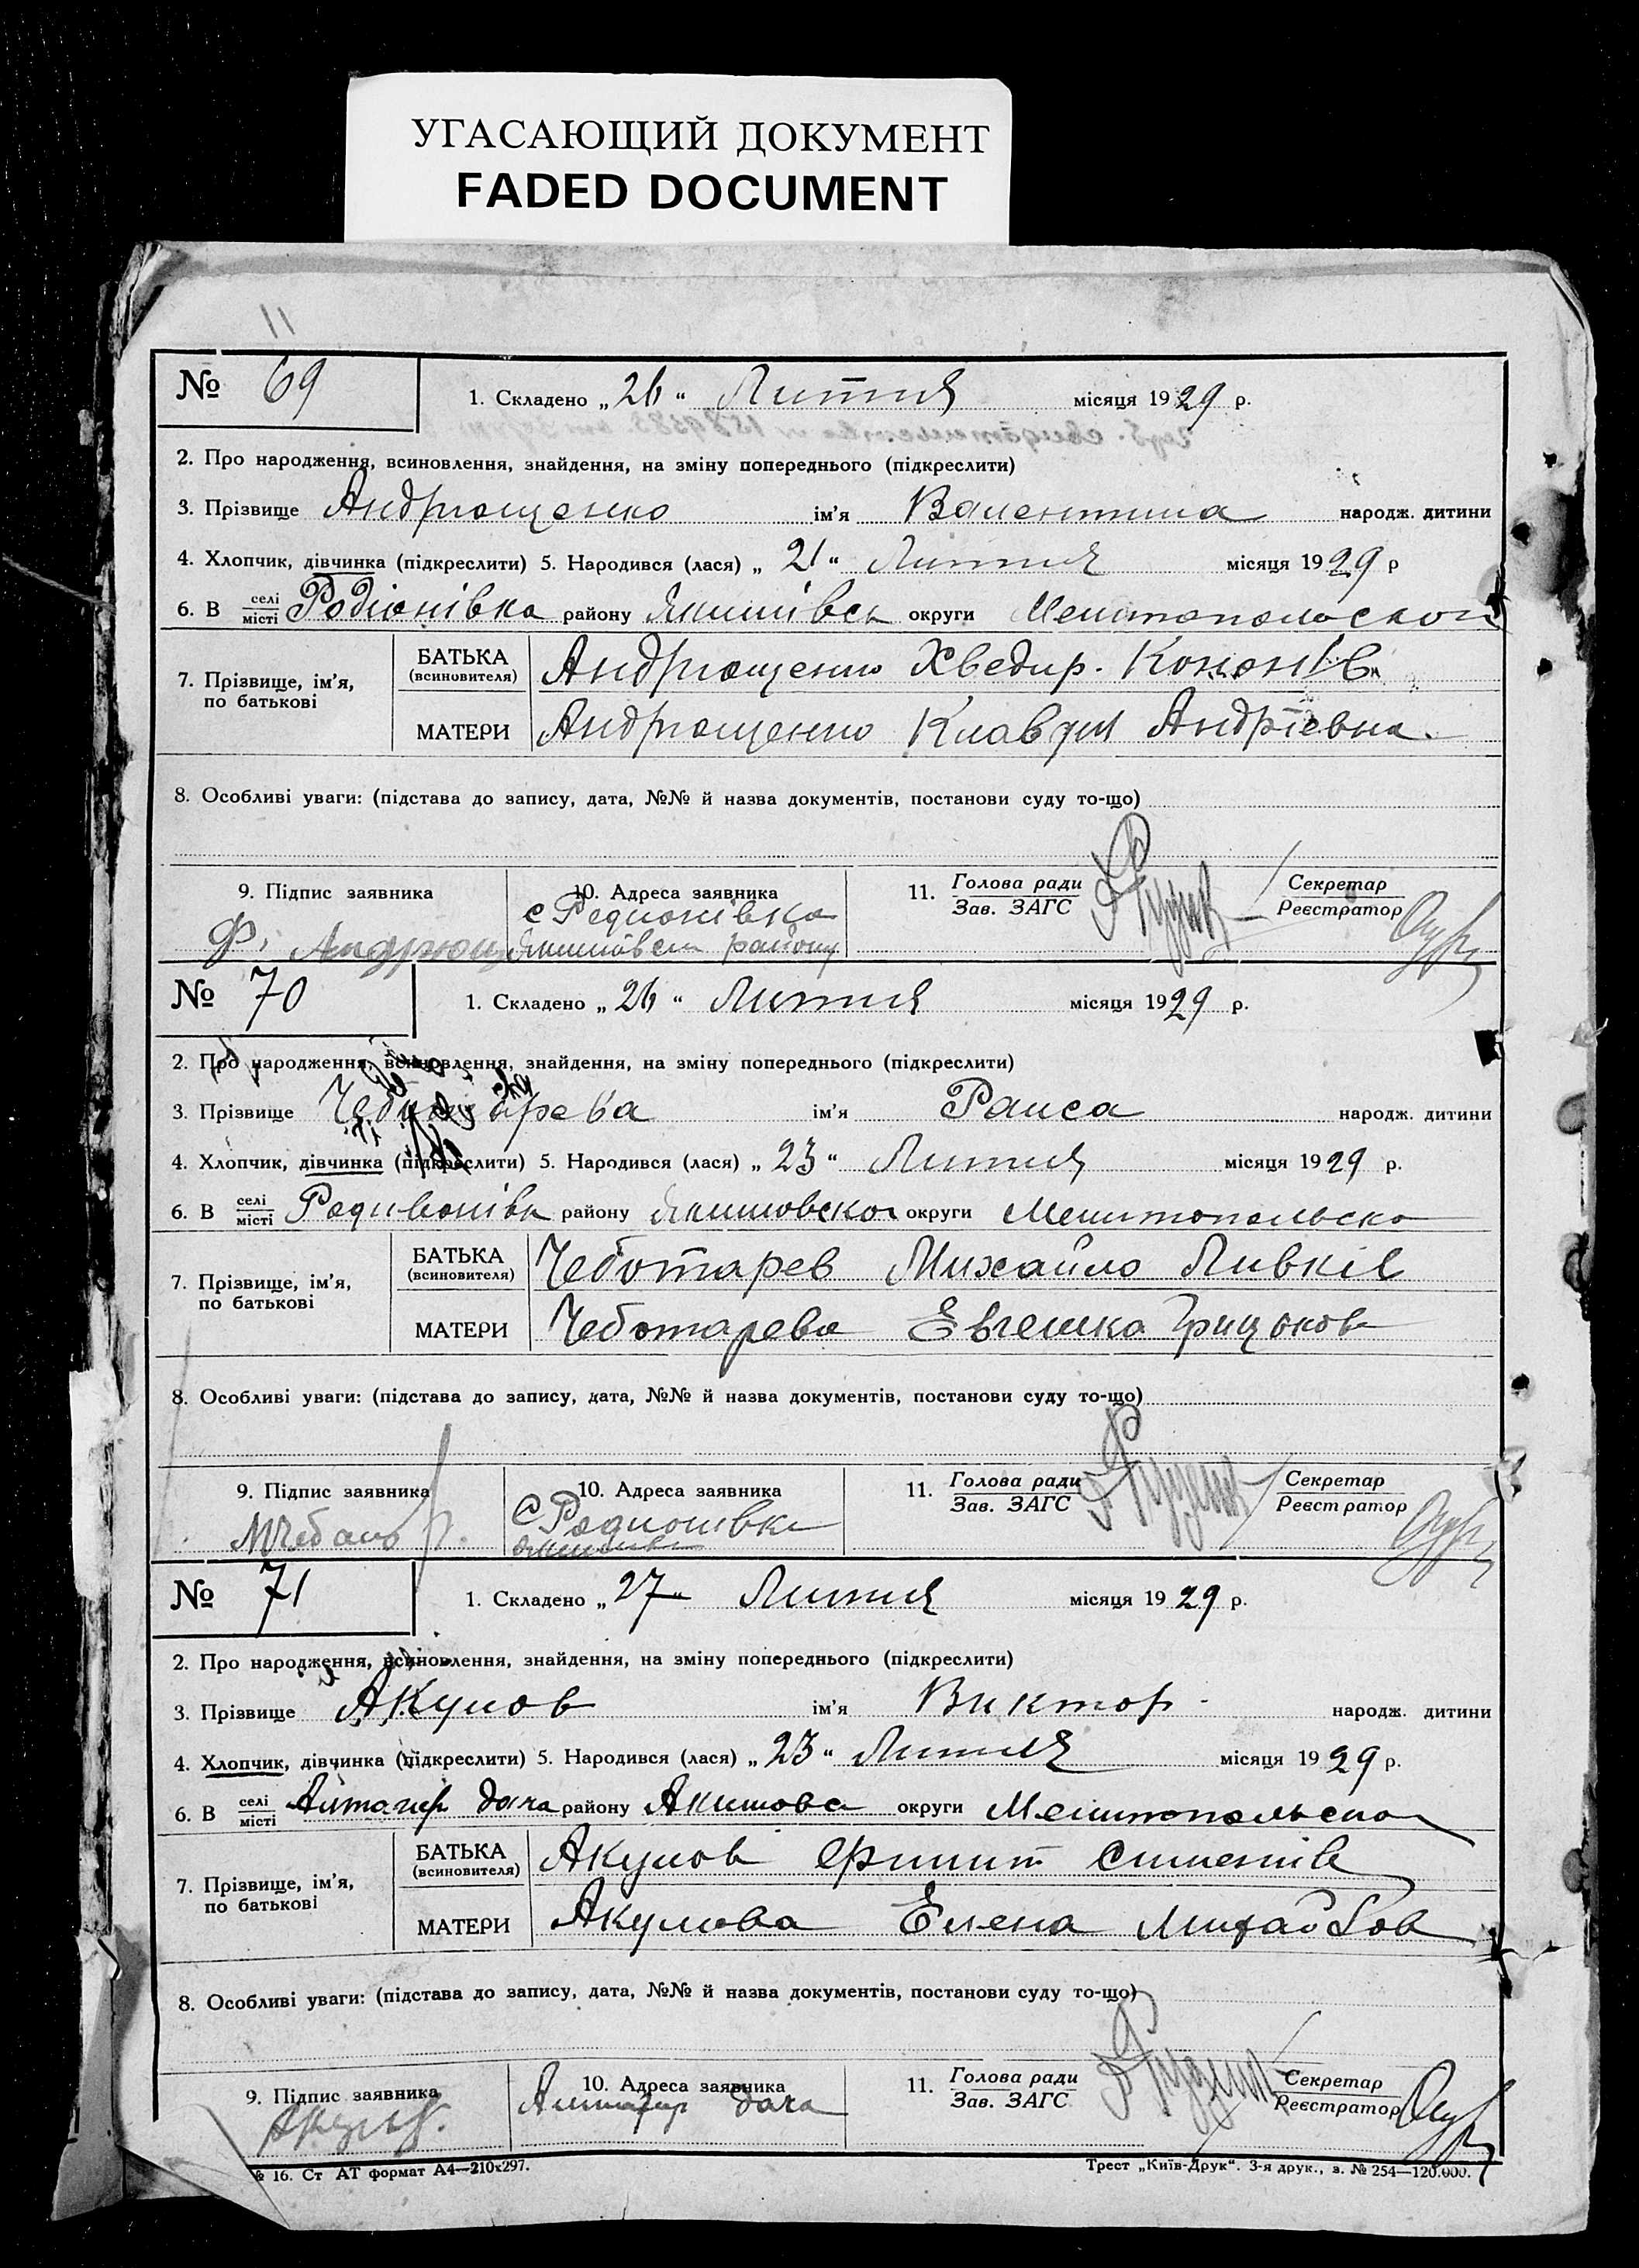 УГАСАЮЩИЙ ДОКУМЕНТ
FADED DOCUMENT
11
№ 69
1. Складено „26“ Лютня місяця 1929 р.
2. Про народження, всиновлення, знайдення, на зміну попереднього (підкреслити)
3. Прізвище Андрющенко ім'я Валентина народж. дитини
4. Хлопчик, дівчинка (підкреслити) 5. Народився (лася) „21“ Лютня місяця 1929 р
6. В селі місті Родіонівка району Якимівськ округи Мелитопольской
7. Прізвище, ім'я, по батькові
БАТЬКА (всиновителя) Андрющенко Хведир. Кононів
МАТЕРИ Андрющенко Клавдия Андріевна.
8. Особливі уваги: (підстава до запису, дата, №№ й назва документів, постанови суду то-що)
9. Підпис заявника
10. Адреса заявника
11. Голова ради Зав. ЗАГС
Секретар Реєстратор
с Редионівка
Ф. Андрющ Якимівськ району
№ 70
1. Складено „26“ Лютня місяця 1929 р.
2. Про народження, всиновлення, знайдення, на зміну попереднього (підкреслити)
3. Прізвище Чеботарева ім'я Раиса народж. дитини
4. Хлопчик, дівчинка (підкреслити) 5. Народився (лася) „23“ Лютня місяця 1929 р.
6. В селі місті Радивонівк району Якимовской округи Мелитопольско
7. Прізвище, ім'я, по батькові
БАТЬКА (всиновителя) Чеботарев Михайло Ливків
МАТЕРИ Чеботарева Евгешка Грицьков
8. Особливі уваги: (підстава до запису, дата, №№ й назва документів, постанови суду то-що)
9. Підпис заявника
10. Адреса заявника
11. Голова ради Зав. ЗАГС
Секретар Реєстратор
С Радионівка
№ 71
1. Складено „27“ Лютня місяця 1929 р.
2. Про народження, всиновлення, знайдення, на зміну попереднього (підкреслити)
3. Прізвище Акулов ім'я Виктор народж. дитини
4. Хлопчик, дівчинка (підкреслити) 5. Народився (лася) „23“ Лютня місяця 1929 р.
6. В селі місті Алтагир дача району Акимовск округи Мелитопольской
7. Прізвище, ім'я, по батькові
БАТЬКА (всиновителя) Акулов Семенів
МАТЕРИ Акулова Елена Михайлов
8. Особливі уваги: (підстава до запису, дата, №№ й назва документів, постанови суду то-що)
9. Підпис заявника
10. Адреса заявника
11. Голова ради Зав. ЗАГС
Секретар Реєстратор
Алтагир дача
№ 16. Ст АТ формат А4—210х297.
Трест „Київ-Друк“. 3-я друк., з. № 254—120.000.